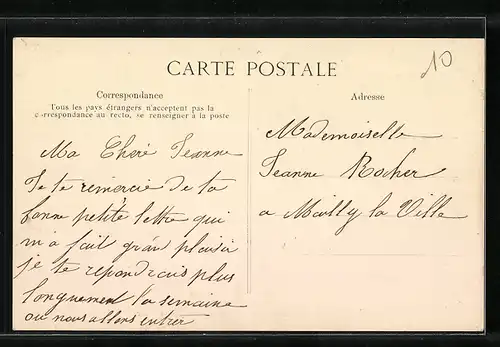 10
CARTE POSTALE
Correspondance
Tous les pays étrangers n'acceptent pas la
correspondance au recto, se renseigner à la poste
Adresse
Ma Chere Jeanne
Je te remercie de ta
bonne petite lettre qui
m'a fait grand plaisir
je te repondrais plus
longuement la semaine
ou nous allons entrer
Mademoiselle
Jeanne Rocher
a Mailly la Ville